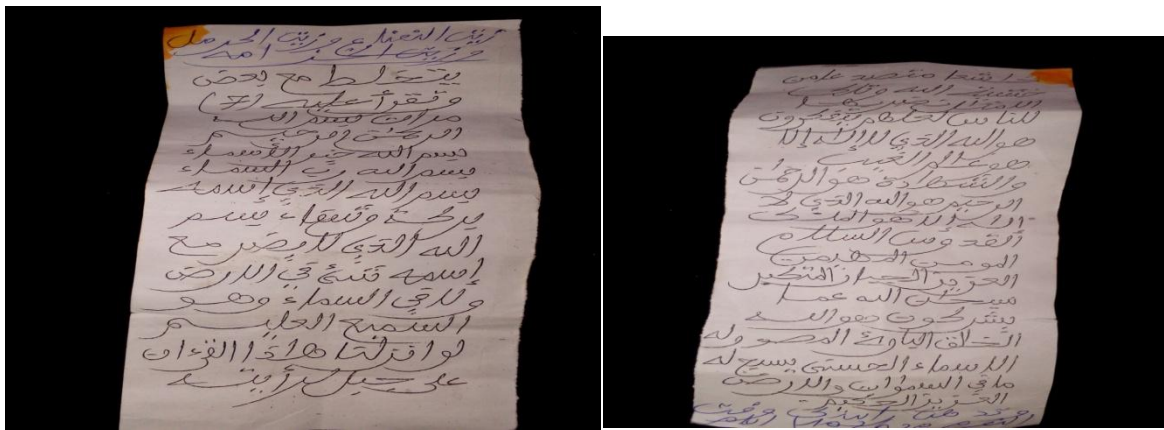 زيت النعناع وزيت الحرمل
وزيت
يتخلط مع بعض
وتقرأ عليه (7)
مرات بسم الله
الرحمن الرحيم
بسم الله خير الأسماء
بسم الله رب السماء
بسم الله الذي إسمه
بركة وشفاء بسم
الله الذي لا يضر مع
إسمه شئ في الارض
ولا في السماء وهو
السميع العليم
لو انزلنا هاذا القرءان
على جبل لرأيته
خاشعا متصدعا من
خشية الله وتلك
الامثال نضربها
للناس لعلهم يتفكرون
هو الله الذي لا إله إلا
هو عالم الغيب
والشهادة هو الرحمن
الرحيم هو الله الذي لا
إله إلا هو الملك
القدوس السلام
المومن المهيمن
العزيز الجبار المتكبر
سبحن الله عما
يشركون هو الله
الخالق البارئ المصور له
الاسماء الحسنى يسبح له
ما في السموات والارض
العزيز الحكيم